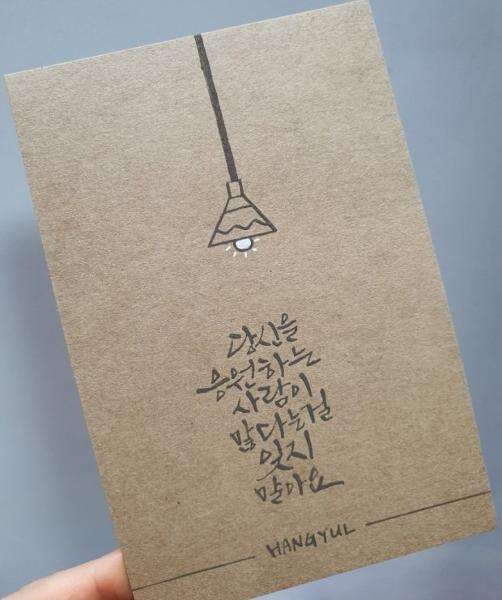 당신을
응원하는
사람이
많다는걸
잊지
말아요
HANGYUL